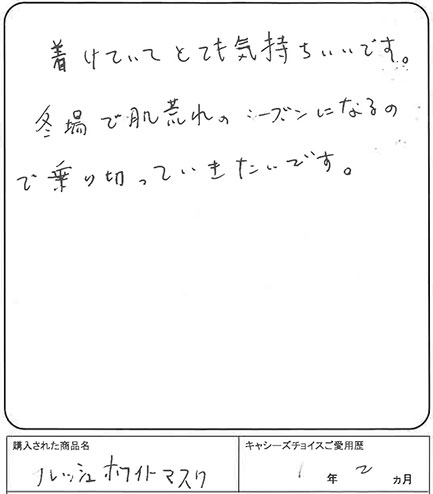 着けていてとても気持ちいいです。
冬場で肌荒れのシーズンになるの
で乗り切っていきたいです。
購入された商品名
キャシーズチョイスご愛用歴
ルッシュホワイトマスク
1年2ヵ月